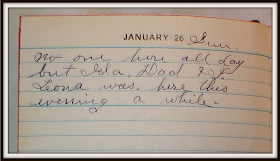 JANUARY 26 Sun.
no one here all day
but Ila, Dad & I
Leona was, here this
evening a while.